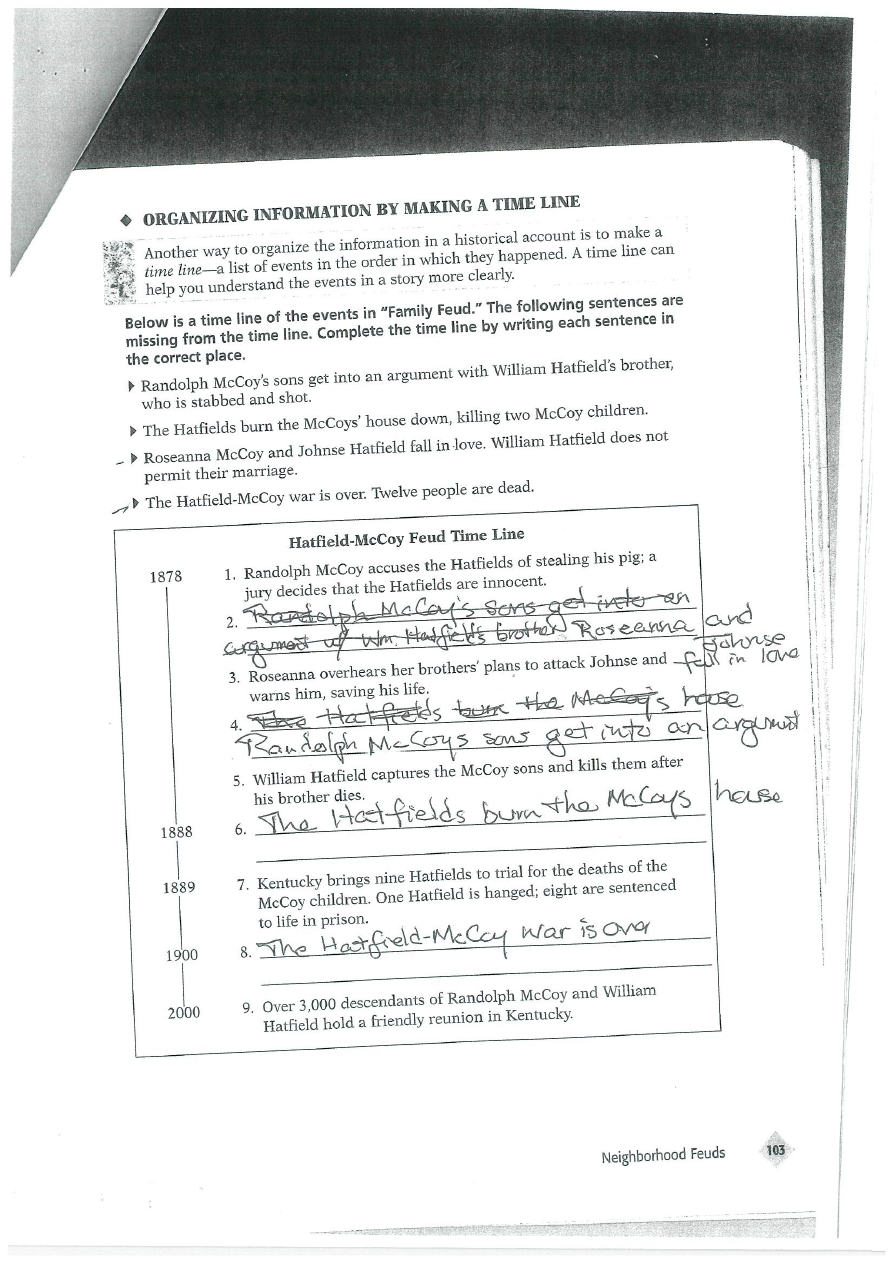 ◆ ORGANIZING INFORMATION BY MAKING A TIME LINE
Another way to organize the information in a historical account is to make a
time line—a list of events in the order in which they happened. A time line can
help you understand the events in a story more clearly.
Below is a time line of the events in "Family Feud." The following sentences are
missing from the time line. Complete the time line by writing each sentence in
the correct place.
▸ Randolph McCoy's sons get into an argument with William Hatfield's brother,
who is stabbed and shot.
▸ The Hatfields burn the McCoys' house down, killing two McCoy children.
▸ Roseanna McCoy and Johnse Hatfield fall in love. William Hatfield does not
permit their marriage.
▸ The Hatfield-McCoy war is over. Twelve people are dead.
Hatfield-McCoy Feud Time Line
1878 1. Randolph McCoy accuses the Hatfields of stealing his pig; a
jury decides that the Hatfields are innocent.
2. Randolph McCoy's sons get into an
argument w/ Wm. Hatfield's brother Roseanna and
Johnse
fall in love
3. Roseanna overhears her brothers' plans to attack Johnse and
warns him, saving his life.
4. The Hatfields burn the McCoy's house
Randolph McCoys sons get into an argument
5. William Hatfield captures the McCoy sons and kills them after
his brother dies.
1888 6. The Hatfields burn the McCoys house
1889 7. Kentucky brings nine Hatfields to trial for the deaths of the
McCoy children. One Hatfield is hanged; eight are sentenced
to life in prison.
1900 8. The Hatfield-McCoy War is Over
2000 9. Over 3,000 descendants of Randolph McCoy and William
Hatfield hold a friendly reunion in Kentucky.
Neighborhood Feuds 103